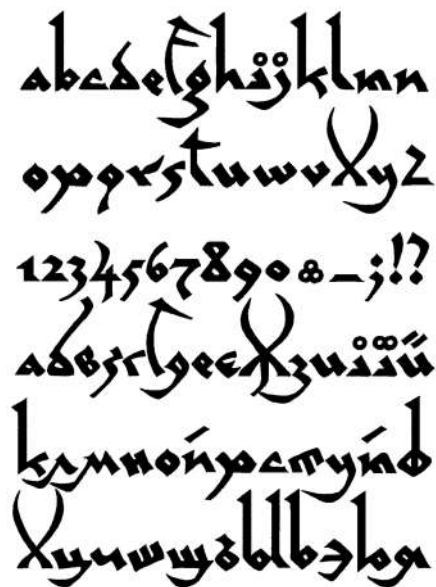 abcdefghijklmn
opqrstuwvxyz
1234567890&–;!?
абвгґдеєжзиіїй
клмнопрстуф
хцчшщъыьэюя